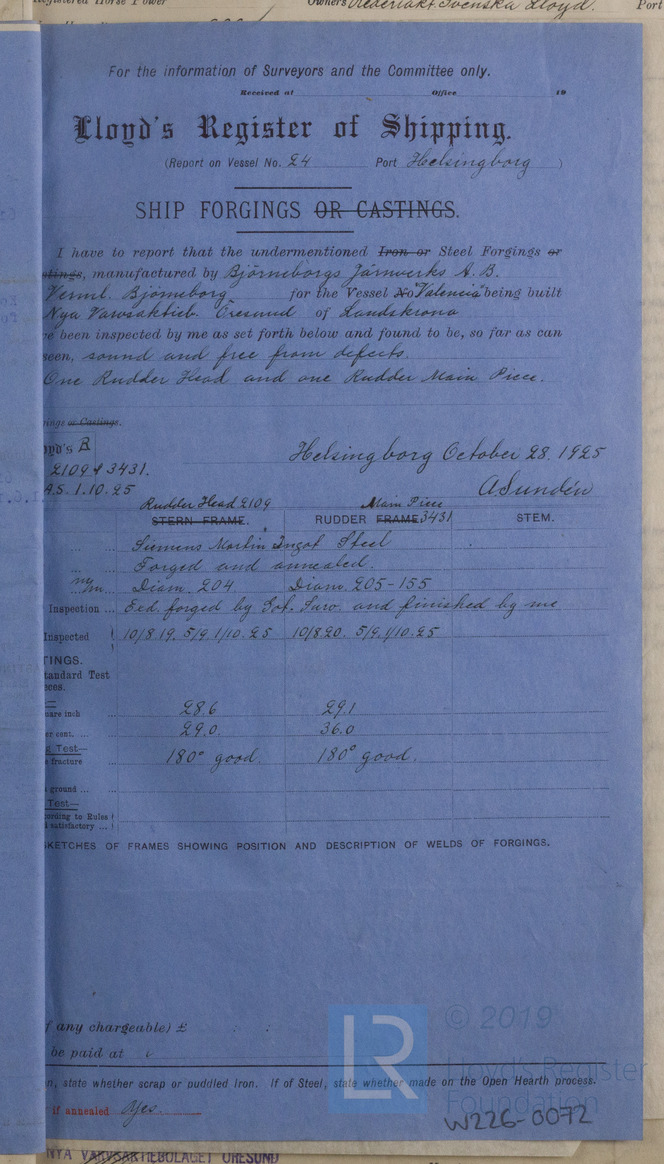 Registered Horse Power Owners Rederiakt. Svenska Lloyd. Port
For the information of Surveyors and the Committee only.
Received at Office 19
Lloyd's Register of Shipping.
(Report on Vessel No. 24 Port Helsingborg )
SHIP FORGINGS OR CASTINGS.
I have to report that the undermentioned Iron or Steel Forgings or
stings, manufactured by Björneborgs Järnverks A.B.
Verml. Björneborg for the Vessel No "Valencia" being built
Nya Varvsaktieb. Öresund of Landskrona
ve been inspected by me as set forth below and found to be, so far as can
seen, sound and free from defects.
One Rudder Head and one Rudder Main Piece.
ings or Castings.
oyd's R
2109 & 3431.
A.S. 1.10.25
Helsingborg October 28. 1925
A Sundén
Rudder Head 2109 Main Piece
STERN FRAME. RUDDER FRAME 3431 STEM.
Siemens Martin Ingot Steel
Forged and annealed.
m/m. Diam. 204 Diam. 205-155
Inspection ... forged by and finished by me
Inspected 10/8.19. 5/9. 1/10.25 10/8.20. 5/9. 1/10.25
TINGS.
tandard Test
eces.
uare inch ... 28.6 29.1
er cent. ... 29.0. 36.0
g Test—
e fracture 180° good. 180° good.
ground ... ...
Test—
cording to Rules
d satisfactory ...
SKETCHES OF FRAMES SHOWING POSITION AND DESCRIPTION OF WELDS OF FORGINGS.
f any chargeable) £ : :
be paid at
n, state whether scrap or puddled Iron. If of Steel, state whether made on the Open Hearth process.
if annealed Yes.
LR
© 2019
Lloyd's Register
Foundation
W226-0072
NYA VARVSAKTIEBOLAGET ÖRESUND